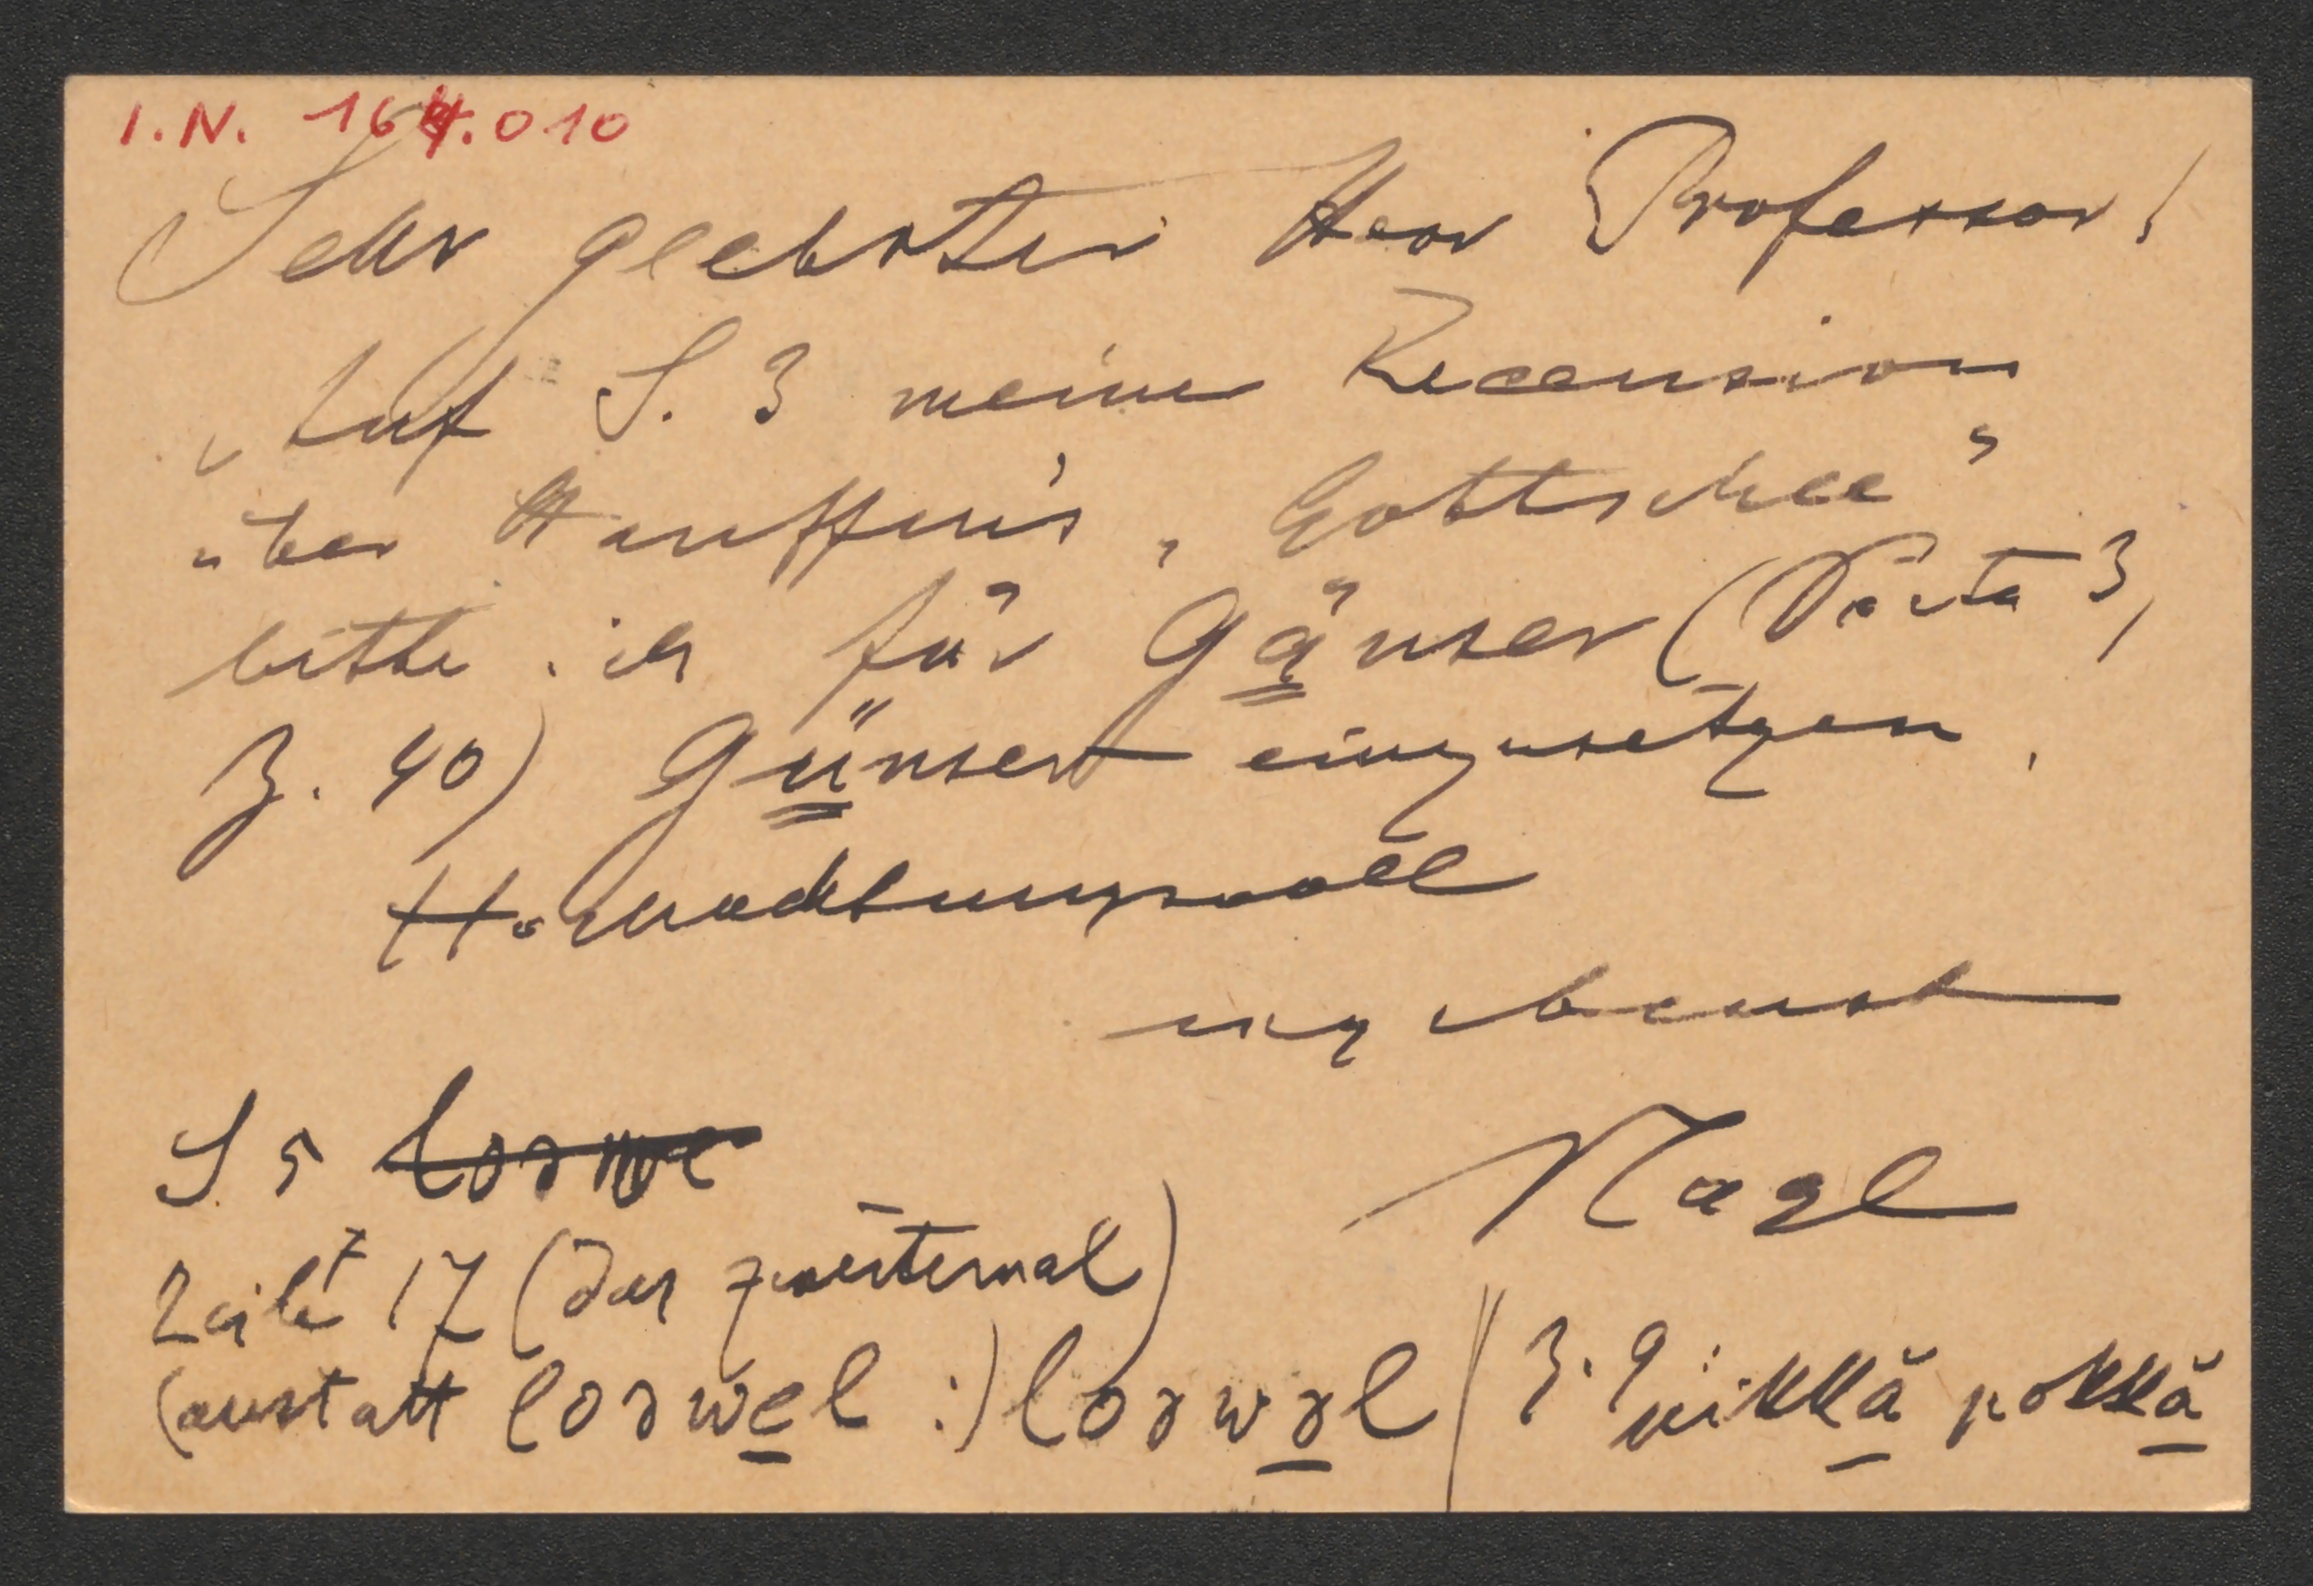 I.N. 164.010
Sehr geehrter Herr Professor!
Auf S. 3 meiner Recension
über Hauffen's „Gottschee"
bitte ich für Gänser (Seite 3,
Z. 40) Günser einzusetzen.
Hochachtungsvoll
ergebenst
Nagl
S 5
Zeile 17 (das zweitemal)
(anstatt loəwel :) loəwəl // Z. 9: pokkă